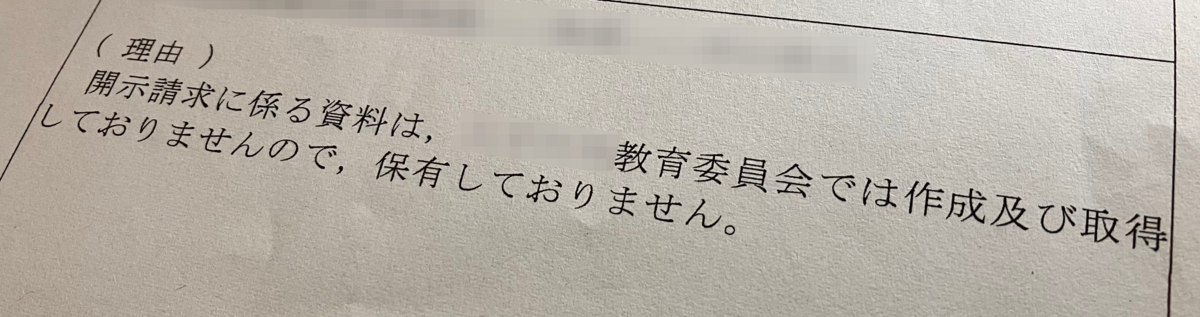 （ 理由 ）
開示請求に係る資料は， 教育委員会では作成及び取得
しておりませんので，保有しておりません。